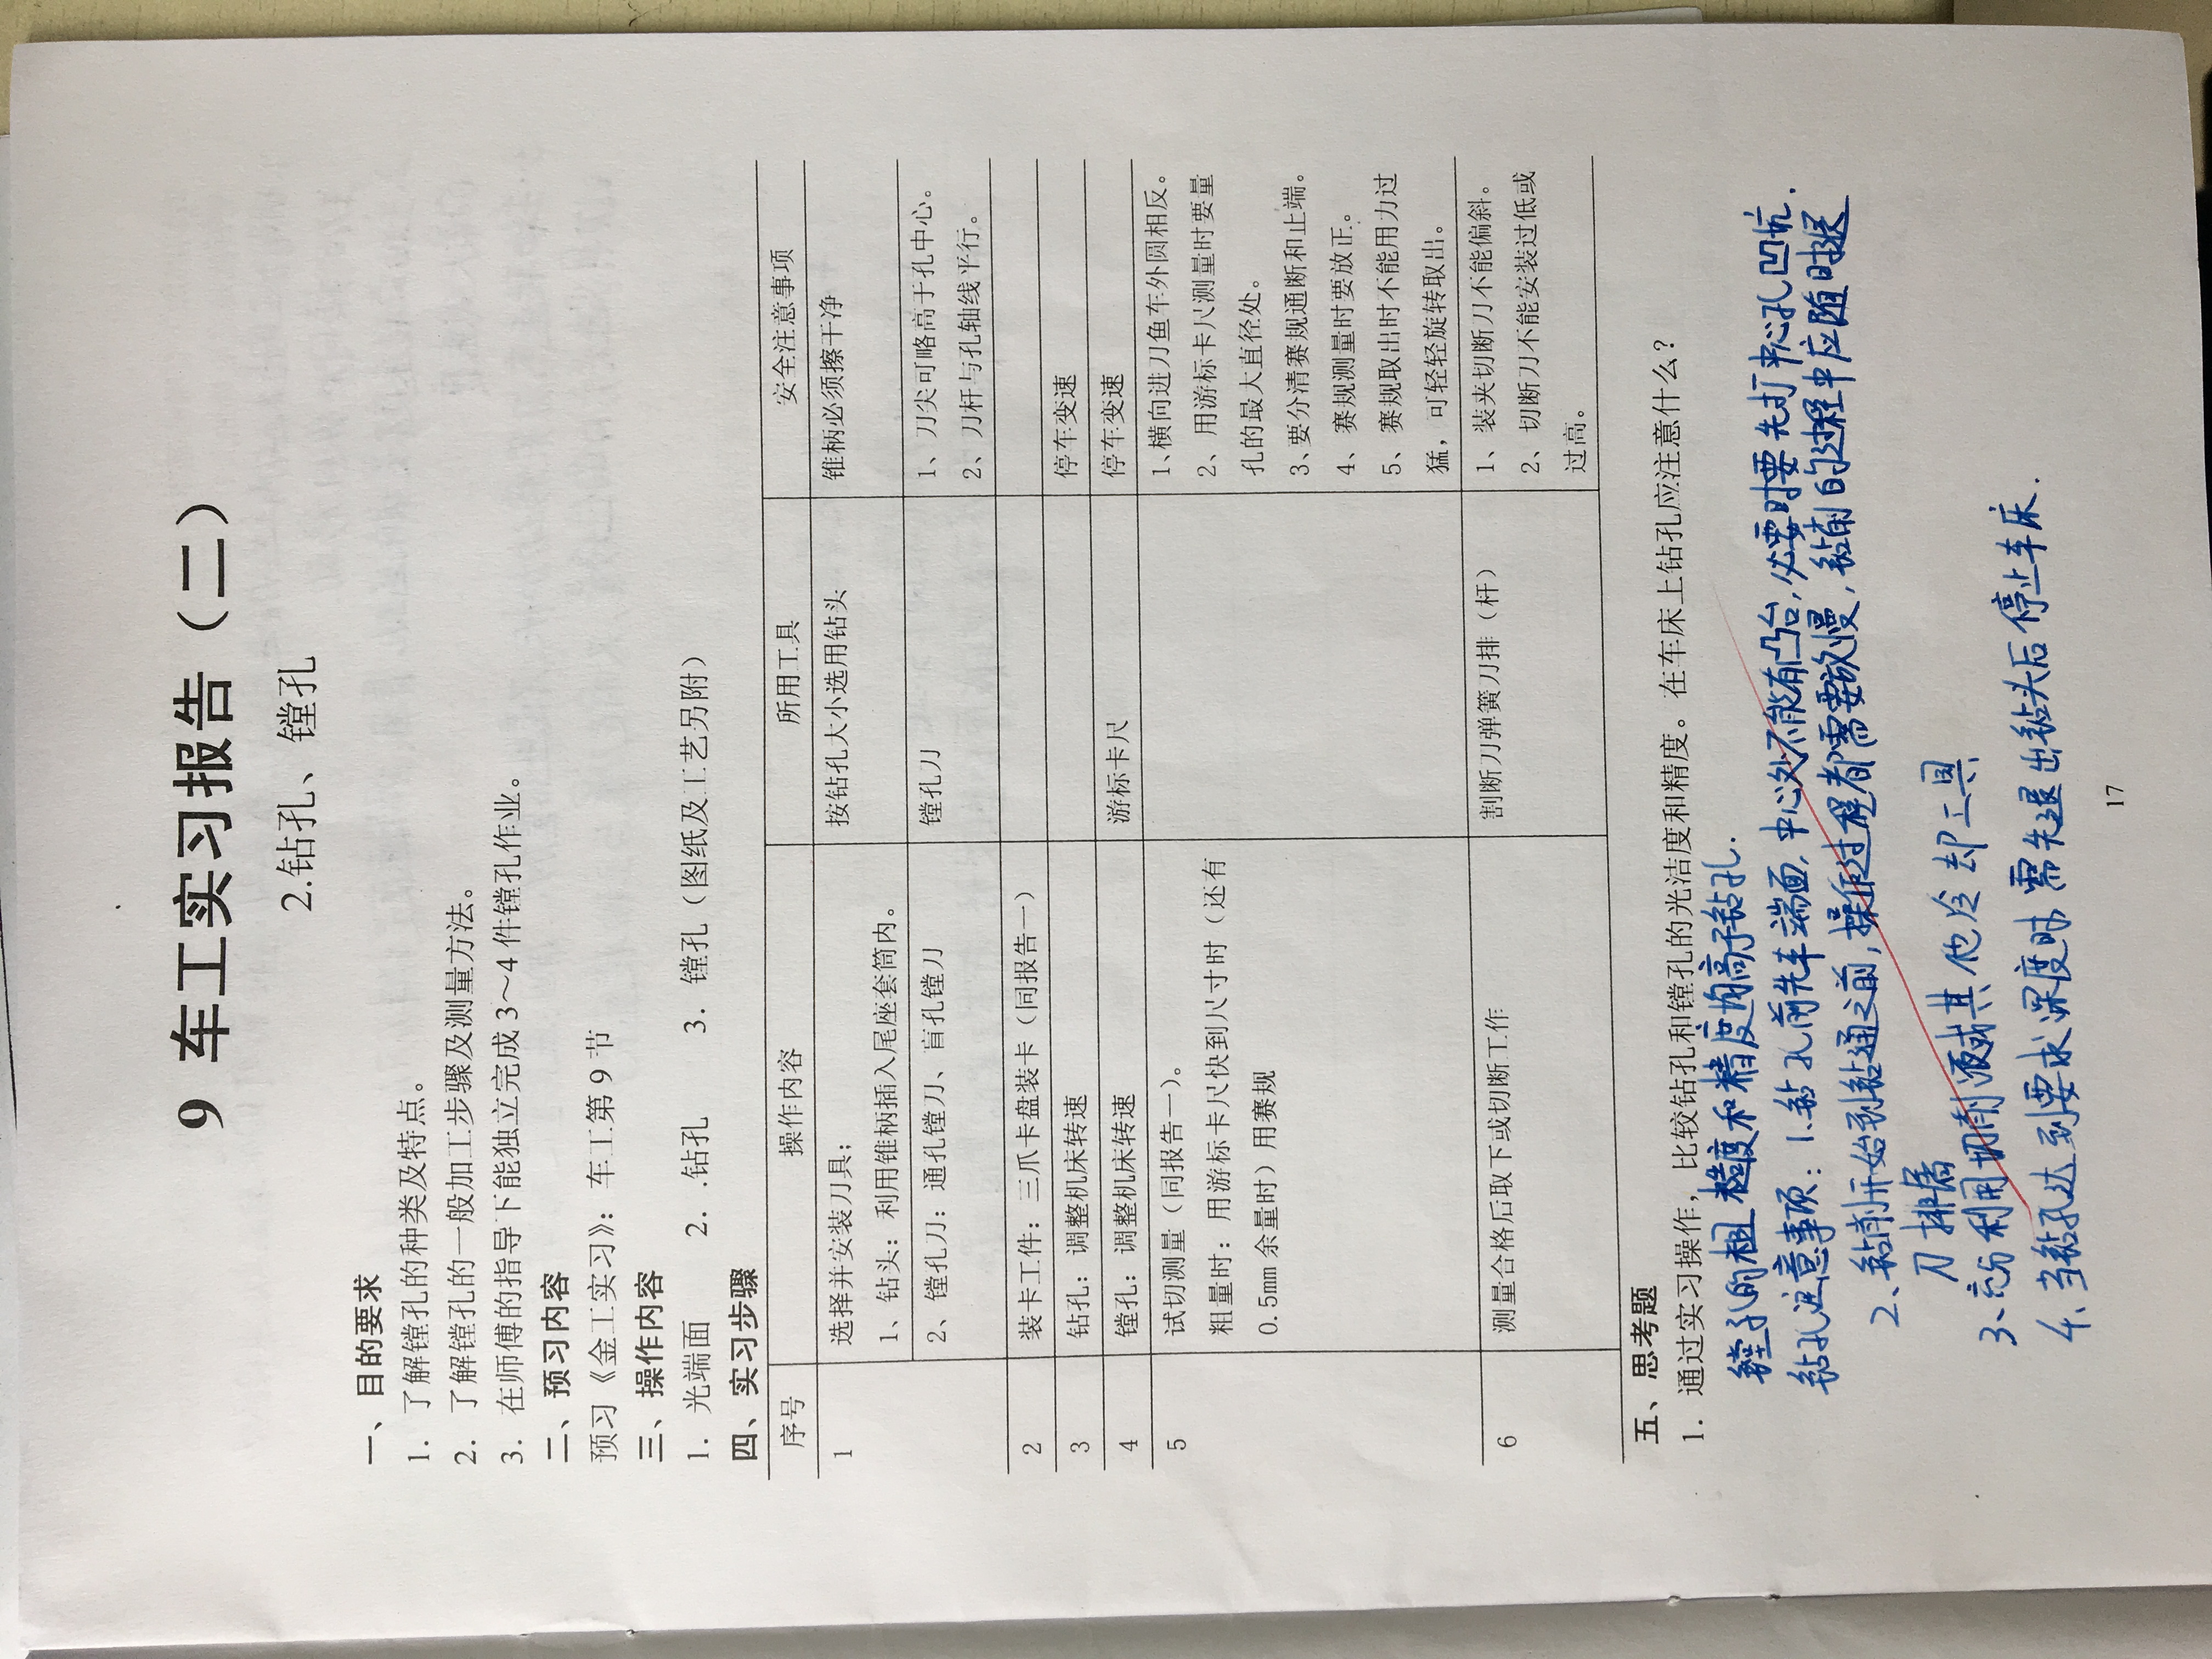 9 车工实习报告（二）
2.钻孔、镗孔
一、目的要求
1. 了解镗孔的种类及特点。
2. 了解镗孔的一般加工步骤及测量方法。
3. 在师傅的指导下能独立完成 3～4 件镗孔作业。
二、预习内容
预习《金工实习》：车工第 9 节
三、操作内容
1. 光端面 2. .钻孔 3. 镗孔（图纸及工艺另附）
四、实习步骤
序号 操作内容 所用工具 安全注意事项
1 选择并安装刀具； 按钻孔大小选用钻头 锥柄必须擦干净
1、钻头：利用锥柄插入尾座套筒内。
2、镗孔刀：通孔镗刀、盲孔镗刀 镗孔刀 1、刀尖可略高于孔中心。
2、刀杆与孔轴线平行。
2 装卡工件：三爪卡盘装卡（同报告一）
3 钻孔：调整机床转速 停车变速
4 镗孔：调整机床转速 游标卡尺 停车变速
5 试切测量（同报告一）。 1、横向进刀鱼车外圆相反。
粗量时：用游标卡尺快到尺寸时（还有 2、用游标卡尺测量时要量
0.5mm 余量时）用赛规 孔的最大直径处。
3、要分清赛规通断和止端。
4、赛规测量时要放正。
5、赛规取出时不能用力过
猛，可轻轻旋转取出。
6 测量合格后取下或切断工作 割断刀弹簧刀排（杆） 1、装夹切断刀不能偏斜。
2、切断刀不能安装过低或
过高。
五、思考题
1. 通过实习操作，比较钻孔和镗孔的光洁度和精度。在车床上钻孔应注意什么？
镗孔的粗糙度和精度均高于钻孔.
钻孔注意事项：1、钻孔前先车端面，中心处不能有凸台，必要时要先打中心孔凹坑.
2、钻削开始到钻通之前，操作过程都需要放慢，钻削的过程中应随时退
刀排屑
3、充分利用切削液或其他冷却工具
4、当钻孔达到要求深度时，需先退出钻头后停止车床.
17